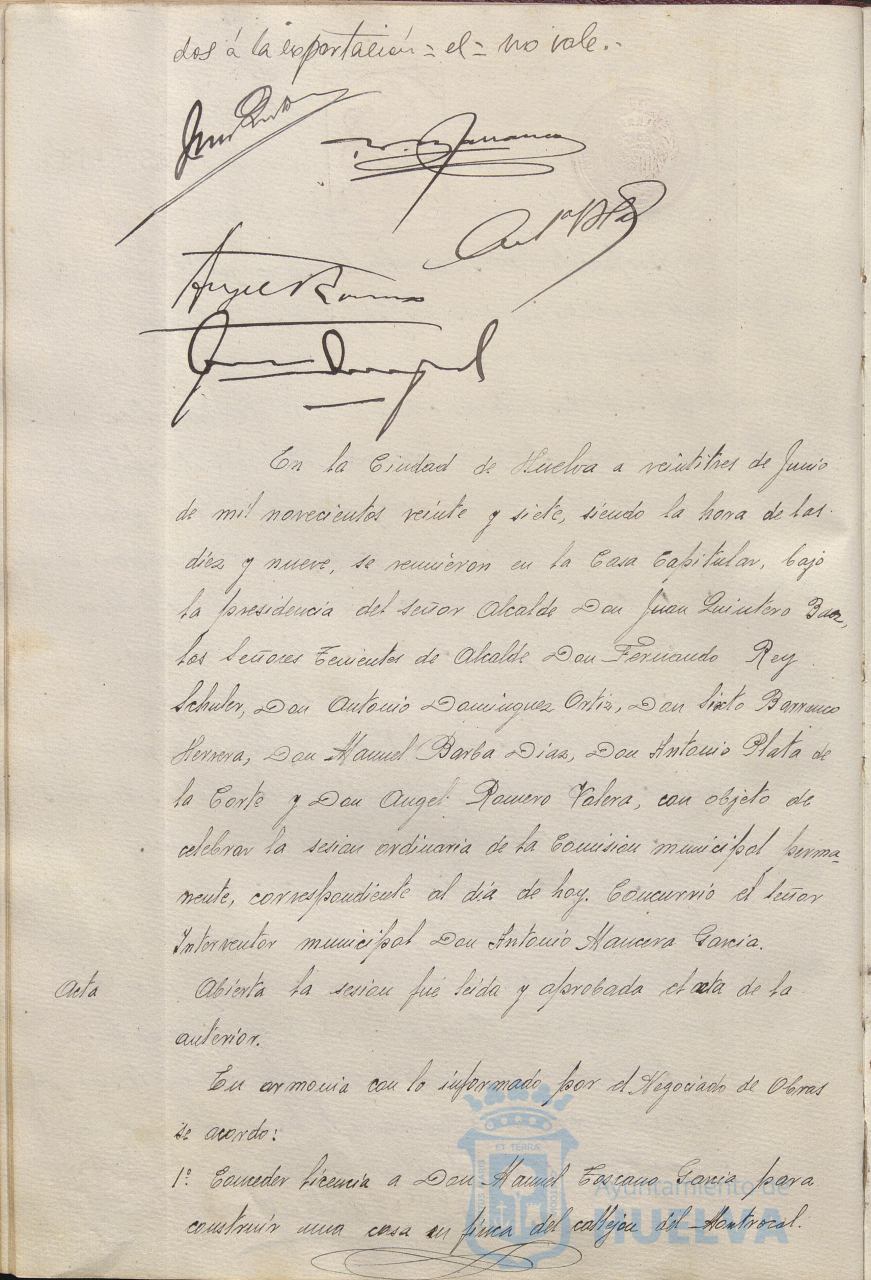 dos á la exportación = el = no vale.-
Angel Romero
En la Ciudad de Huelva a veintitres de Junio
de mil novecientos veinte y siete, siendo la hora de las
diez y nueve, se reunieron en la Casa Capitular, bajo
la presidencia del Señor Alcalde Don Juan Quintero Baez,
los Señores Tenientes de Alcalde Don Fernando Rey
Schuler, Don Antonio Dominguez Ortiz, Don Sixto Barranco
Herrera, Don Manuel Barba Diaz, Don Antonio Plata de
la Corte y Don Angel Romero Valera, con objeto de
celebrar la sesion ordinaria de la Comision municipal perma-
nente, correspondiente al día de hoy. Concurrió el Señor
Interventor municipal Don Antonio Mancera Garcia.
Acta
Abierta la sesion fué leida y aprobada el acta de la
anterior.
En armonia con lo informado por el Negociado de Obras
se acordo:
1º. Conceder licencia a Don Manuel Toscano Garcia para
construir una casa en finca del callejon del
ET TERRÆ
Ayuntamiento de
HUELVA